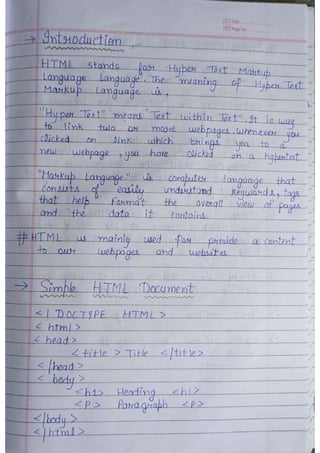 Date
Page No.
→ Introduction:
HTML stands for Hyper Text Markup
Language Language. The meaning of Hyper Text
Markup Language is,
"Hyper Text" means "Text within Text". It is way
to link two or more webpages. whenever you
clicked on link which brings you to a
new webpage, you have clicked on a hypertext
"Markup Language" is computer language that
consists of easily understood keywords, tags
that help format the overall view of pages
and the data it contains.
# HTML is mainly used for provide a content
to our webpages and websites.
→ Simple HTML Document
<! DOCTYPE HTML>
< html>
< head>
< title > Title </title>
</head>
< body>
<h1> Heading <h1>
<P> Paragraph <P>
</body>
</html>